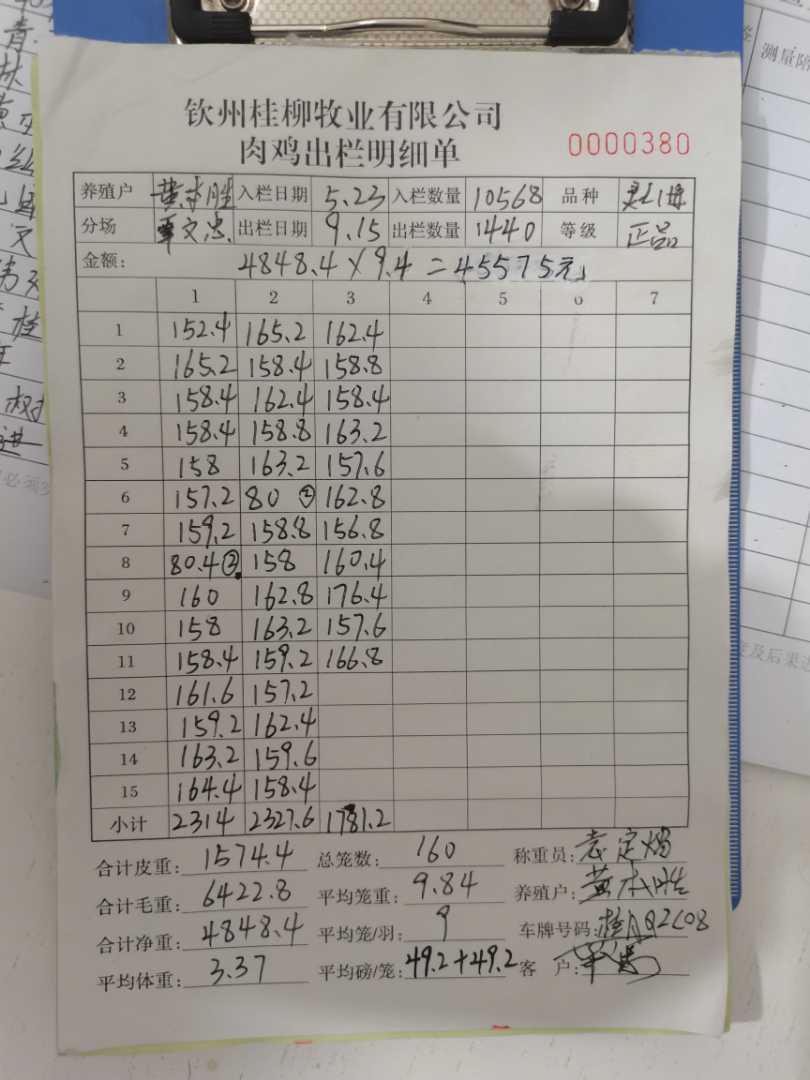 钦州桂柳牧业有限公司
肉鸡出栏明细单
0000380
养殖户 黄本胜 入栏日期 5.23 入栏数量 10568 品种
分场 覃文忠 出栏日期 9.15 出栏数量 1440 等级 正品
金额: 4848.4×9.4=45575元
1 2 3 4 5 6 7
1 152.4 165.2 162.4
2 165.2 158.4 158.8
3 158.4 162.4 158.4
4 158.4 158.8 163.2
5 158 163.2 157.6
6 157.2 80 ② 162.8
7 159.2 158.8 156.8
8 80.4② 158 160.4
9 160 162.8 176.4
10 158 163.2 157.6
11 158.4 159.2 166.8
12 161.6 157.2
13 159.2 162.4
14 163.2 159.6
15 164.4 158.4
小计 2314 2327.6 1781.2
合计皮重: 1574.4 总笼数: 160 称重员:
合计毛重: 6422.8 平均笼重: 9.84 养殖户: 黄本胜
合计净重: 4848.4 平均笼/羽: 9 车牌号码:
平均体重: 3.37 平均磅/笼: 49.2+49.2 客 户:
测量陪